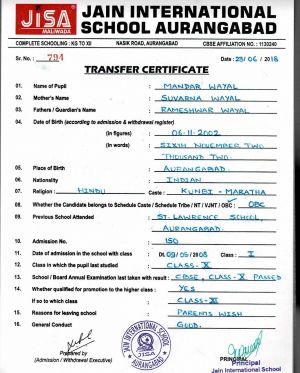 JISA
MALIWADA
JAIN INTERNATIONAL
SCHOOL AURANGABAD
COMPLETE SCHOOLING : KG TO XII NASIK ROAD, AURANGABAD CBSE AFFILIATION NO. : 1130240
Sr. No. : 794 Date : 23/06/2018
TRANSFER CERTIFICATE
01. Name of Pupil : MANDAR WAYAL
02. Mother's Name : SUVARNA WAYAL
03. Fathers / Guardian's Name : RAMESHWAR WAYAL
04. Date of Birth (according to admission & withdrawal register)
(in figures) : 06-11-2002
(in words) : SIXTH NOVEMBER TWO
THOUSAND TWO.
05. Place of Birth : AURANGABAD.
06. Nationality : INDIAN
07. Religion : HINDU Caste : KUNBI - MARATHA
08. Whether the Candidate belongs to Schedule Caste / Schedule Tribe / NT / VJNT / OBC : OBC
09. Previous School Attended : ST. LAWRENCE SCHOOL,
AURANGABAD.
10. Admission No. : 150
11. Date of admission in the school with class : Dt. 09/06/2008 Class : I
12. Class in which the pupil last studied : CLASS-X
13. School / Board Annual Examination last taken with result : CBSE, CLASS-X PASSED
14. Whether qualified for promotion to the higher class : YES
If so to which class : CLASS-XI
15. Reasons for leaving school : PARENTS WISH
16. General Conduct : GOOD.
Prepared by
(Admission / Withdrawal Executive)
JAIN INTERNATIONAL SCHOOL
JISA
AURANGABAD
PRINCIPAL
Principal
Jain International School